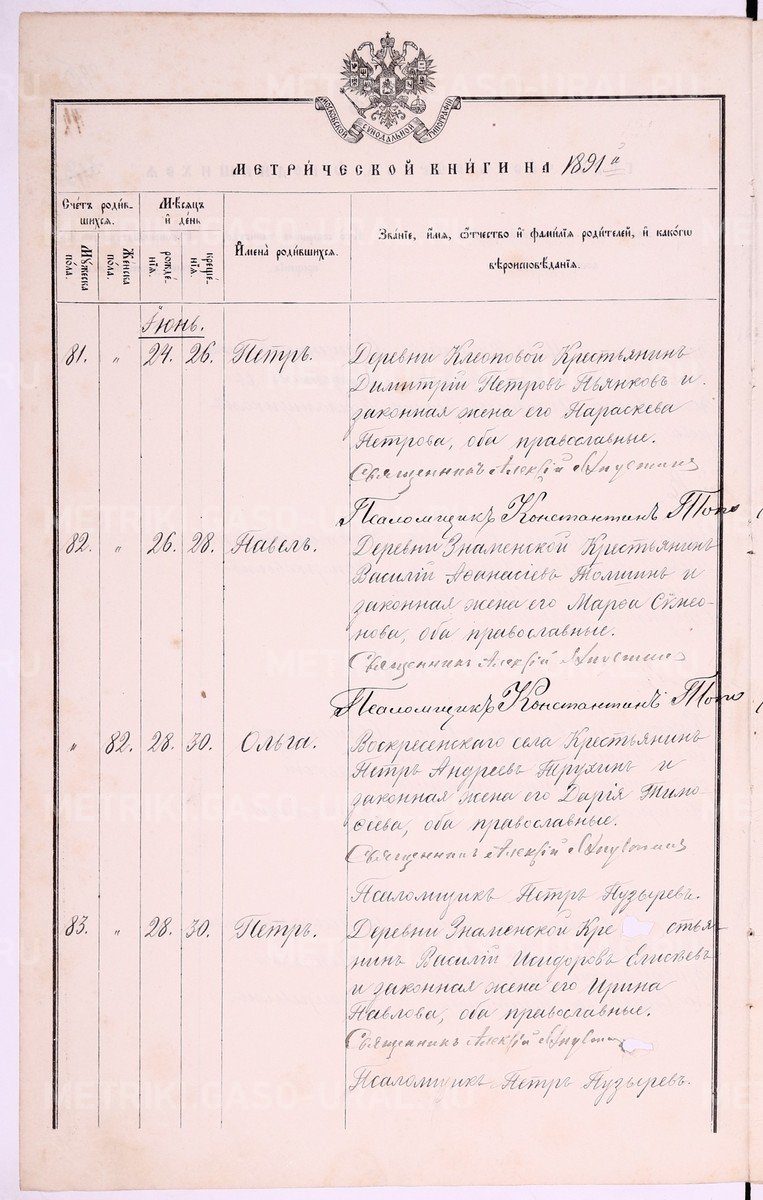 МОСКОВСКОЙ СѶНОДАЛЬНОЙ ТИПОГРАФІИ
МЕТРИ́ЧЕСКОЙ КНИ́ГИ НА 1891 й
Сче́тъ роди́в-
шихся.
Мѣ́сяцъ
и҆ де́нь
Мꙋ́жеска
по́ла.
Же́нска
по́ла.
рожде́-
нїѧ.
креще́-
нїѧ.
И҆мена̀ роди́вшихся.
Зва́нїе, и҆́мя, ѻ҆́тчество и҆ фами́лїа роди́телей, и҆ како́гѡ
вѣроисповѣ́данїѧ.
Іюнь.
81. " 24. 26. Петръ.
Деревни Клеоповой Крестьянинъ
Димитрій Петровъ Пьянковъ и
законная жена его Параскева
Петрова, оба православные.
Священникъ Алексій
Псаломщикъ Константинъ Топо
82. " 26. 28. Павелъ.
Деревни Знаменской Крестьянинъ
Василій Аѳанасіевъ Толшинъ и
законная жена его Марѳа Сѵмео-
нова, оба православные.
Священникъ Алексій
Псаломщикъ Константинъ Топо
" 82. 28. 30. Ольга.
Воскресенскаго села Крестьянинъ
Петръ Андреевъ Трухинъ и
законная жена его Дарія Тимо-
ѳеева, оба православные.
Священникъ Алексій
Псаломщикъ Петръ Пузыревъ.
83. " 28. 30. Петръ.
Деревни Знаменской Кре стья-
нинъ Василій Исидоровъ Елисѣевъ
и законная жена его Ирина
Павлова, оба православные.
Священникъ Алексій
Псаломщикъ Петръ Пузыревъ.